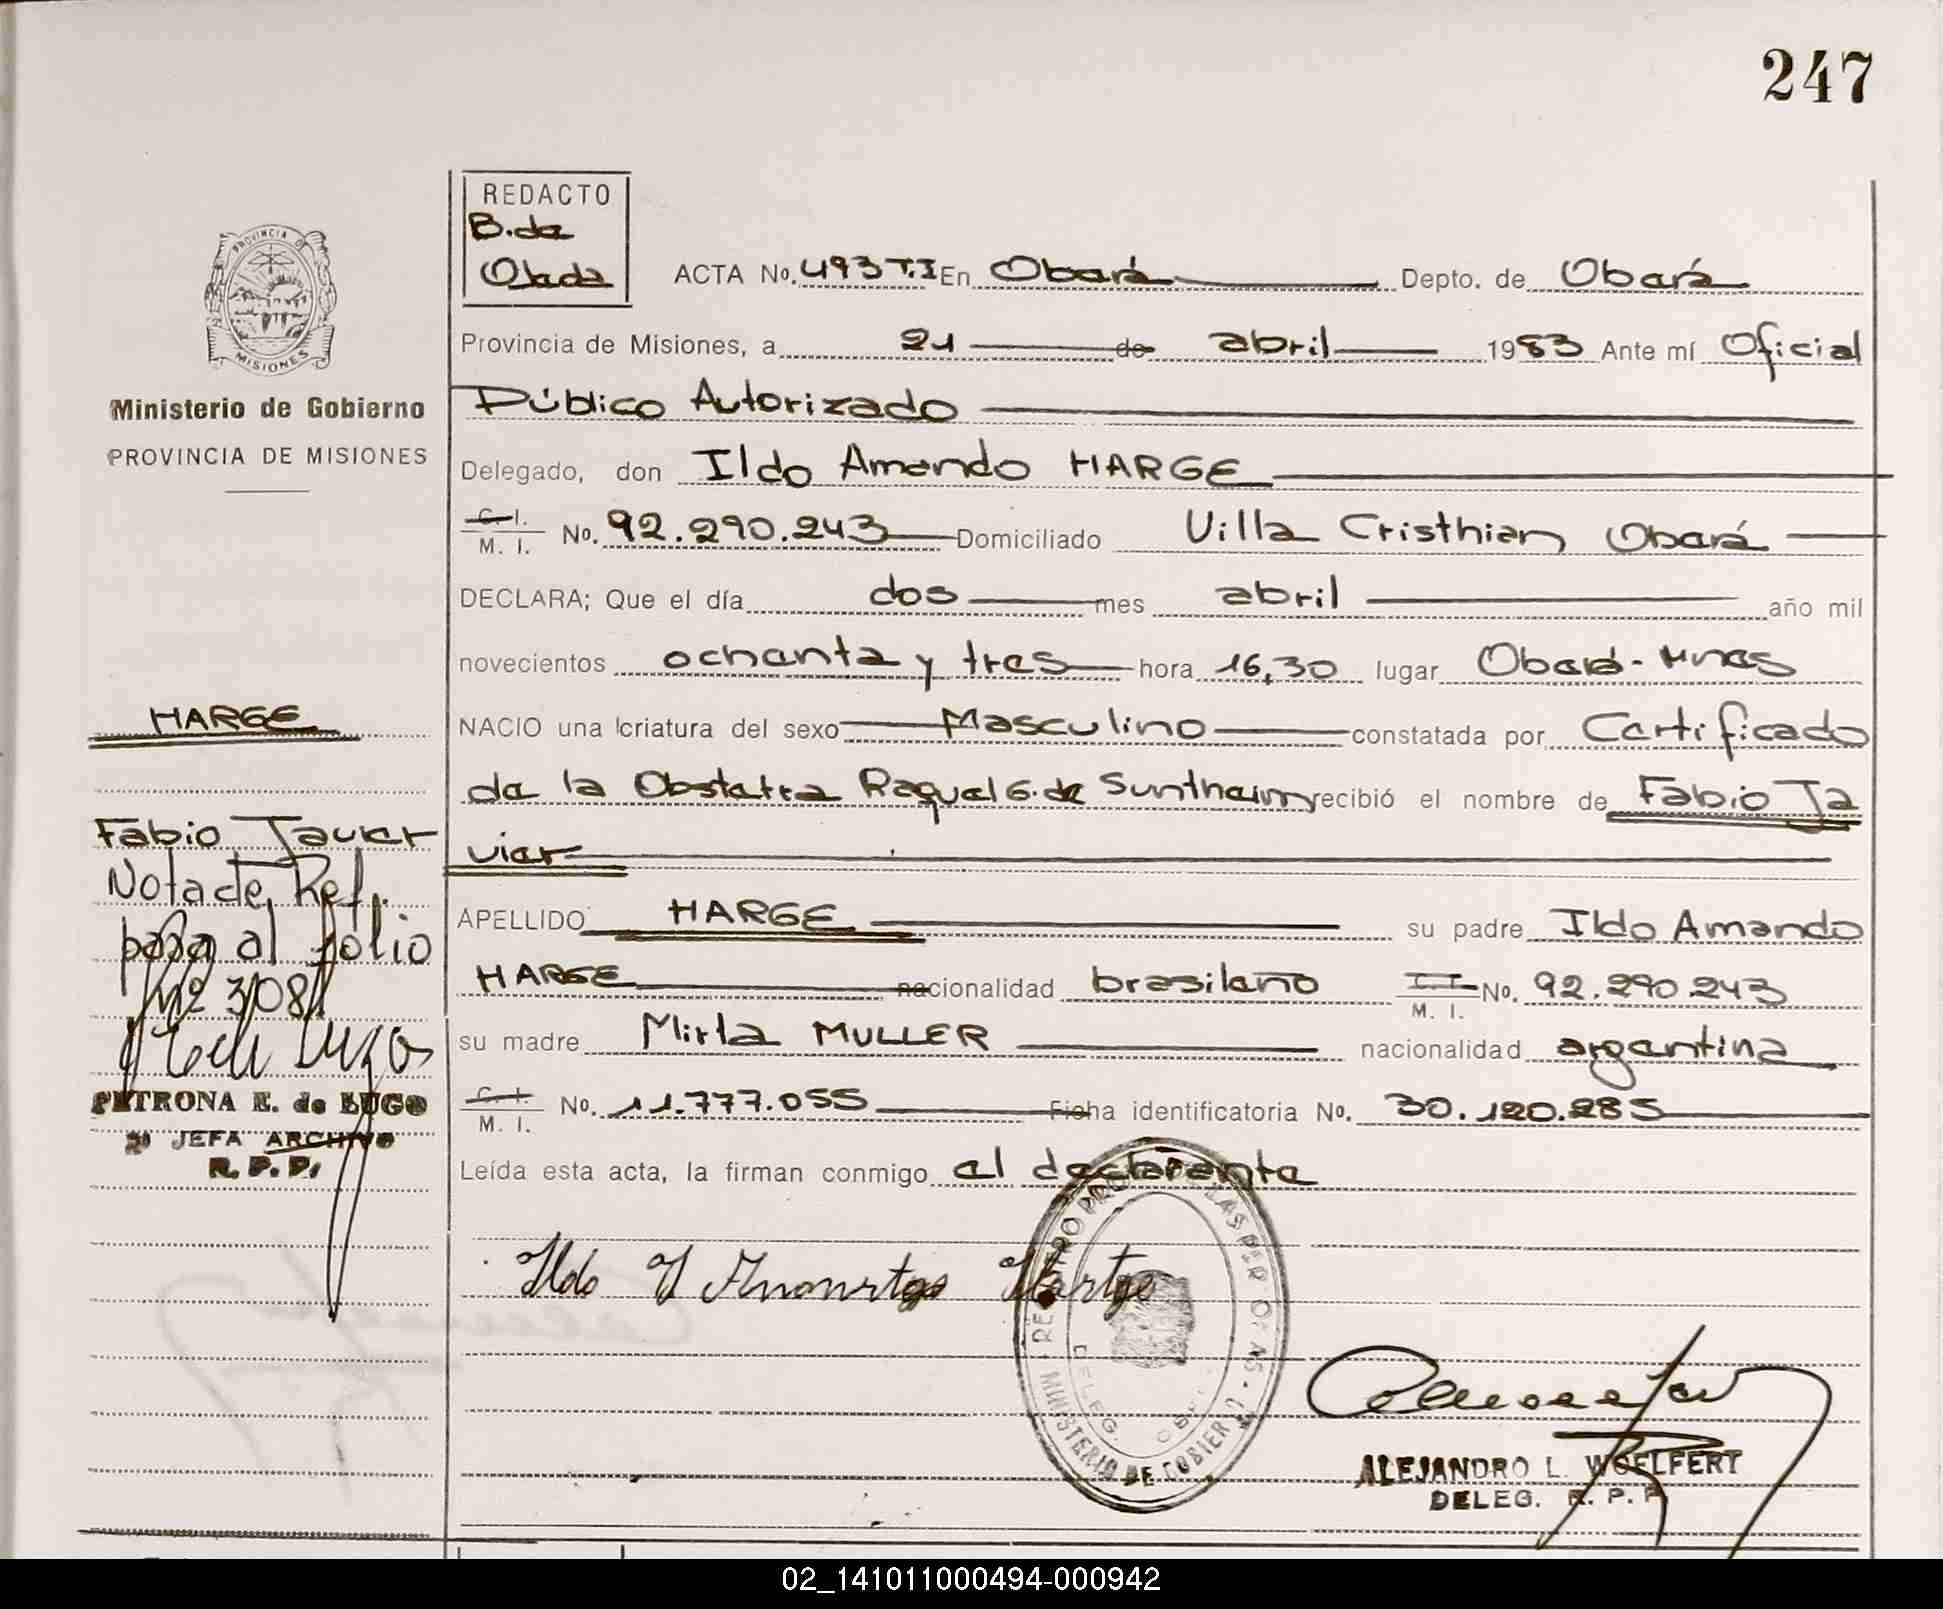 247
REDACTO
B. de
Ojeda
ACTA No. 493 T.I En Oberá Depto. de Oberá
Provincia de Misiones, a 21 de abril 1983 Ante mí Oficial
Público Autorizado
Delegado, don Ildo Amando HARGE
C. I.
M. I. No. 92.290.243 Domiciliado Villa Cristhian Oberá
DECLARA; Que el día dos mes abril año mil
novecientos ochenta y tres hora 16,30 lugar Oberá - Mnes
NACIO una criatura del sexo Masculino constatada por Certificado
de la Obstetra Raquel G. de Suntheim recibió el nombre de Fabio Ja
vier
APELLIDO HARGE su padre Ildo Amando
HARGE nacionalidad brasileño M. I. No. 92.290.243
su madre Mirta MULLER nacionalidad argentina
C. I.
M. I. No. 11.777.055 Ficha identificatoria No. 30.120.285
Leída esta acta, la firman conmigo el declarante
Ildo
ALEJANDRO L. WOELFERT
DELEG. R. P. P.
MINISTERIO DE GOBIERNO
DELEG.
PROVINCIA DE
MISIONES
Ministerio de Gobierno
PROVINCIA DE MISIONES
HARGE
Fabio Javier
Nota de Ref.
pasa al folio
Nº 308
PETRONA E. de LUGO
JEFA ARCHIVO
R. P. P.
02_141011000494-000942